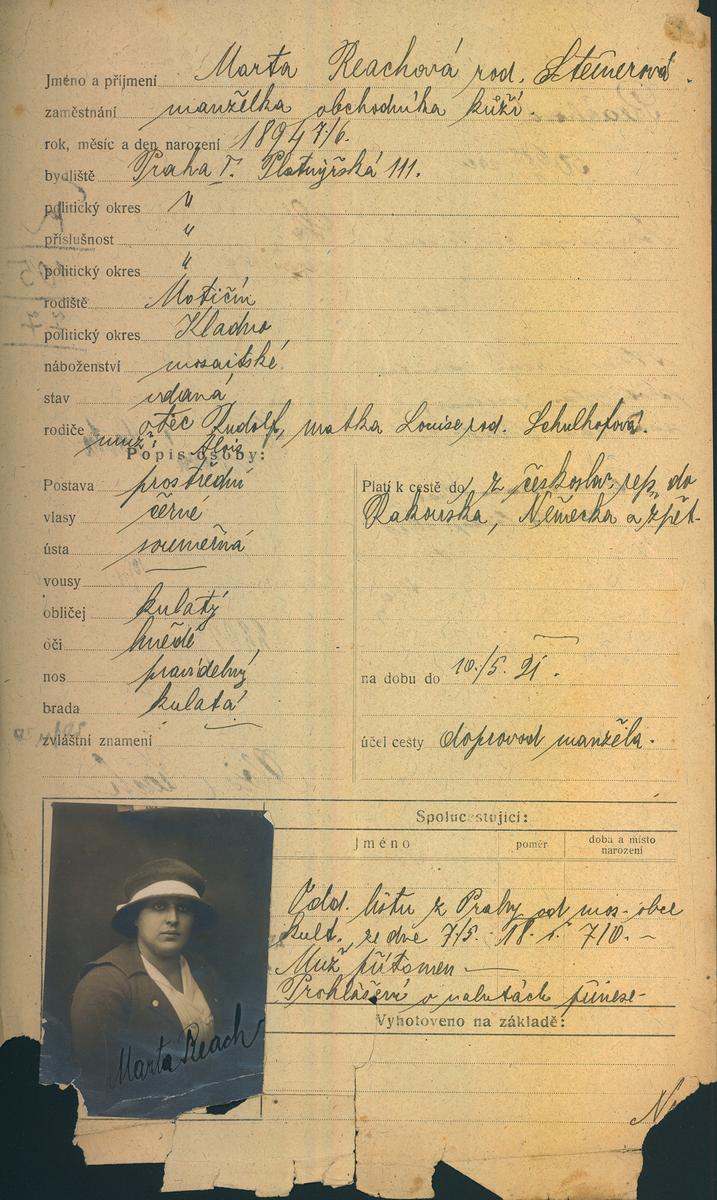 Jméno a příjmení Marta Reachová rod. Steinerová.
zaměstnání manželka obchodníka kůží.
rok, měsíc a den narození 1894 7/6.
bydliště Praha I. Platnýřská 111.
politický okres "
příslušnost "
politický okres "
rodiště Motičín
politický okres Kladno
náboženství mosaitské
stav vdaná
rodiče otec Rudolf, matka Louise rod. Schulhofová.
muž Alois
Popis osoby:
Postava prostřední
vlasy černé
ústa souměrná
vousy —
obličej kulatý
oči hnědé
nos pravidelný
brada kulatá
zvláštní znamení
Platí k cestě do z českoslov. rep. do
Rakouska, Německa a zpět.
na dobu do 10./5. 21.
účel cesty doprovod manžela.
Spolucestující:
Jméno poměr doba a místo narození
Odd. listu z Prahy od mos. obce
kult. ze dne 7/5. 18. 710. –
Muž přítomen —
Prohlášení o valutách přinese –
Vyhotoveno na základě:
Marta Reach